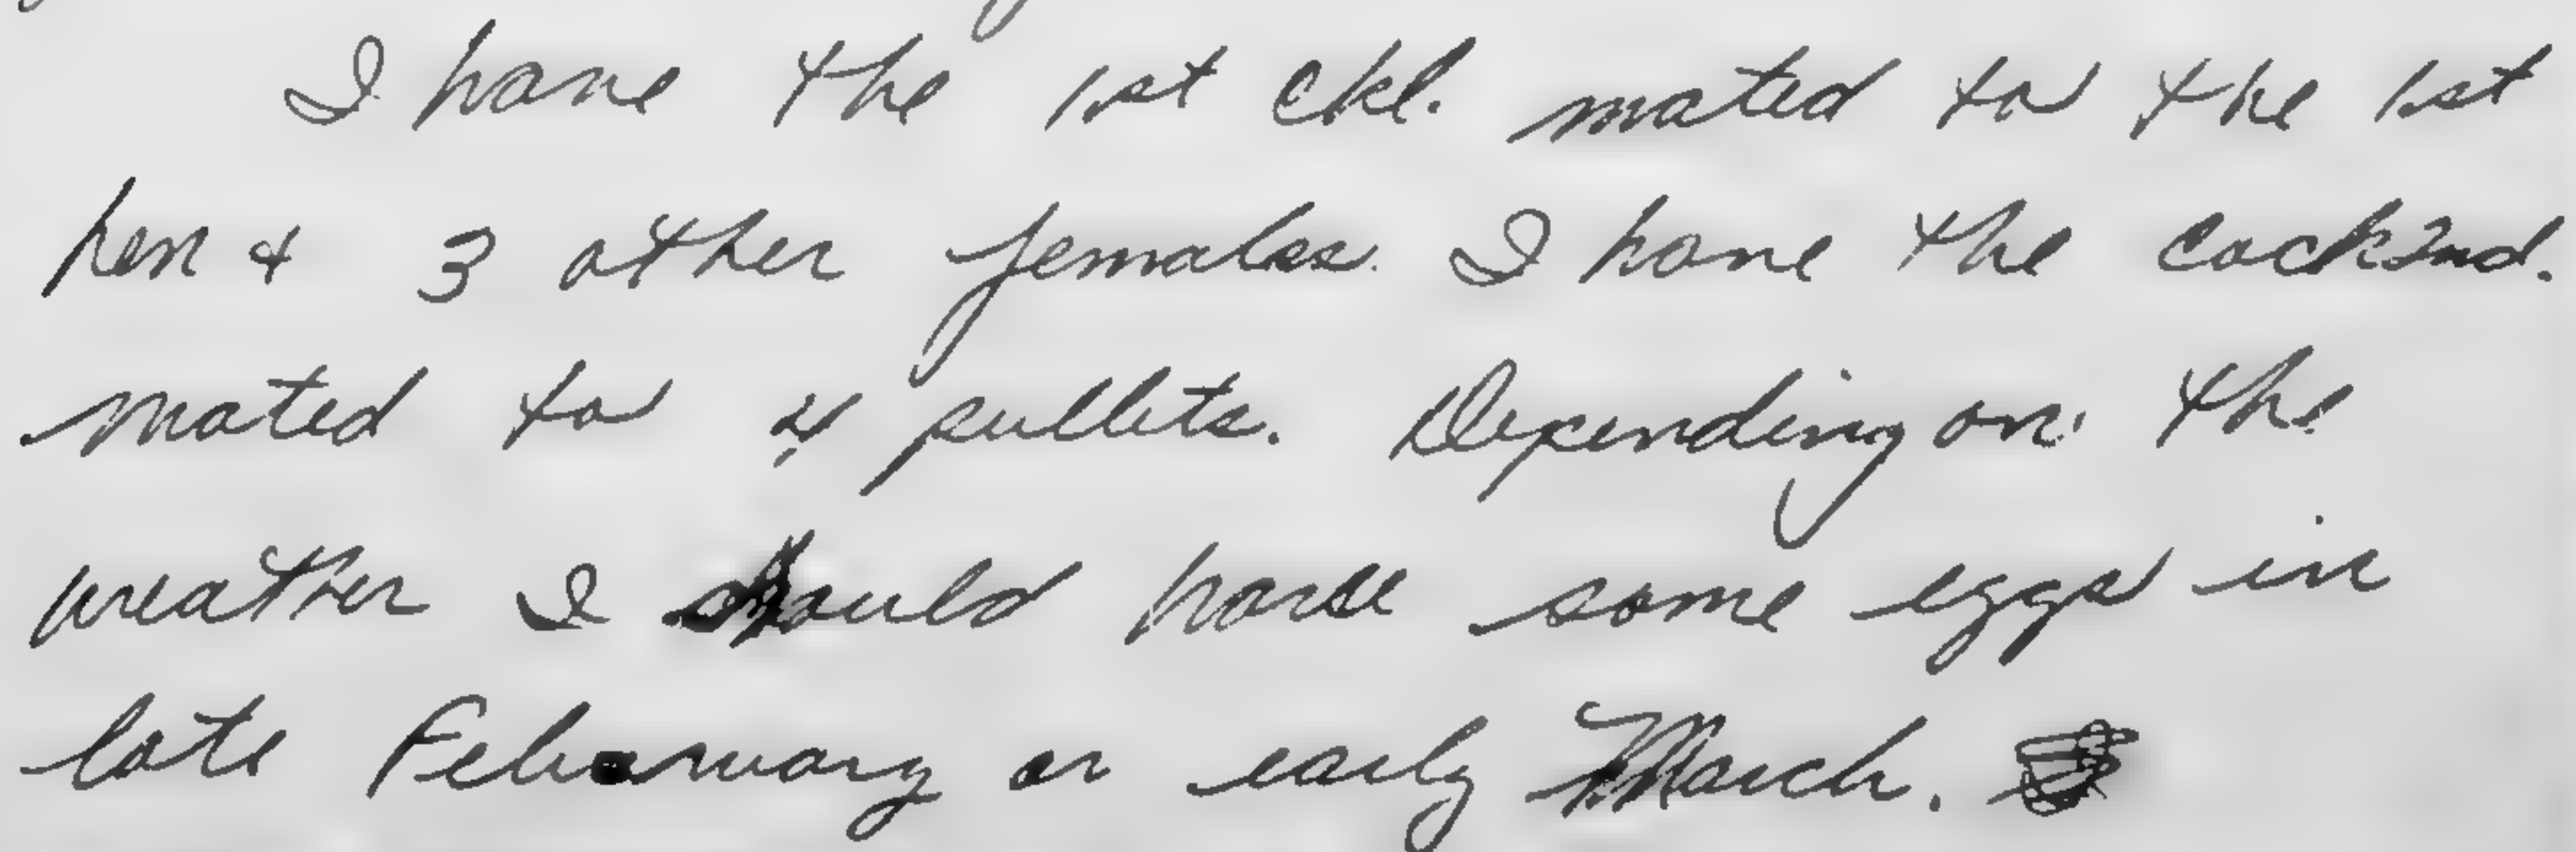 I have the 1st ckl. mated to the 1st
hen & 3 other females. I have the cock 2nd.
mated to 4 pullets. Depending on the
weather I should have some eggs in
late February or early March.